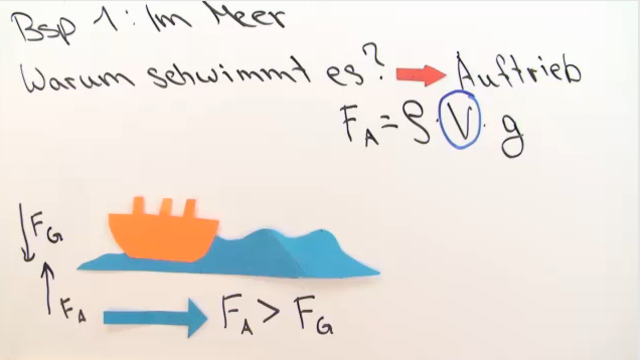 Bsp 1: Im Meer
Warum schwimmt es? Auftrieb
F_A = ρ · V · g
F_G
F_A
F_A > F_G